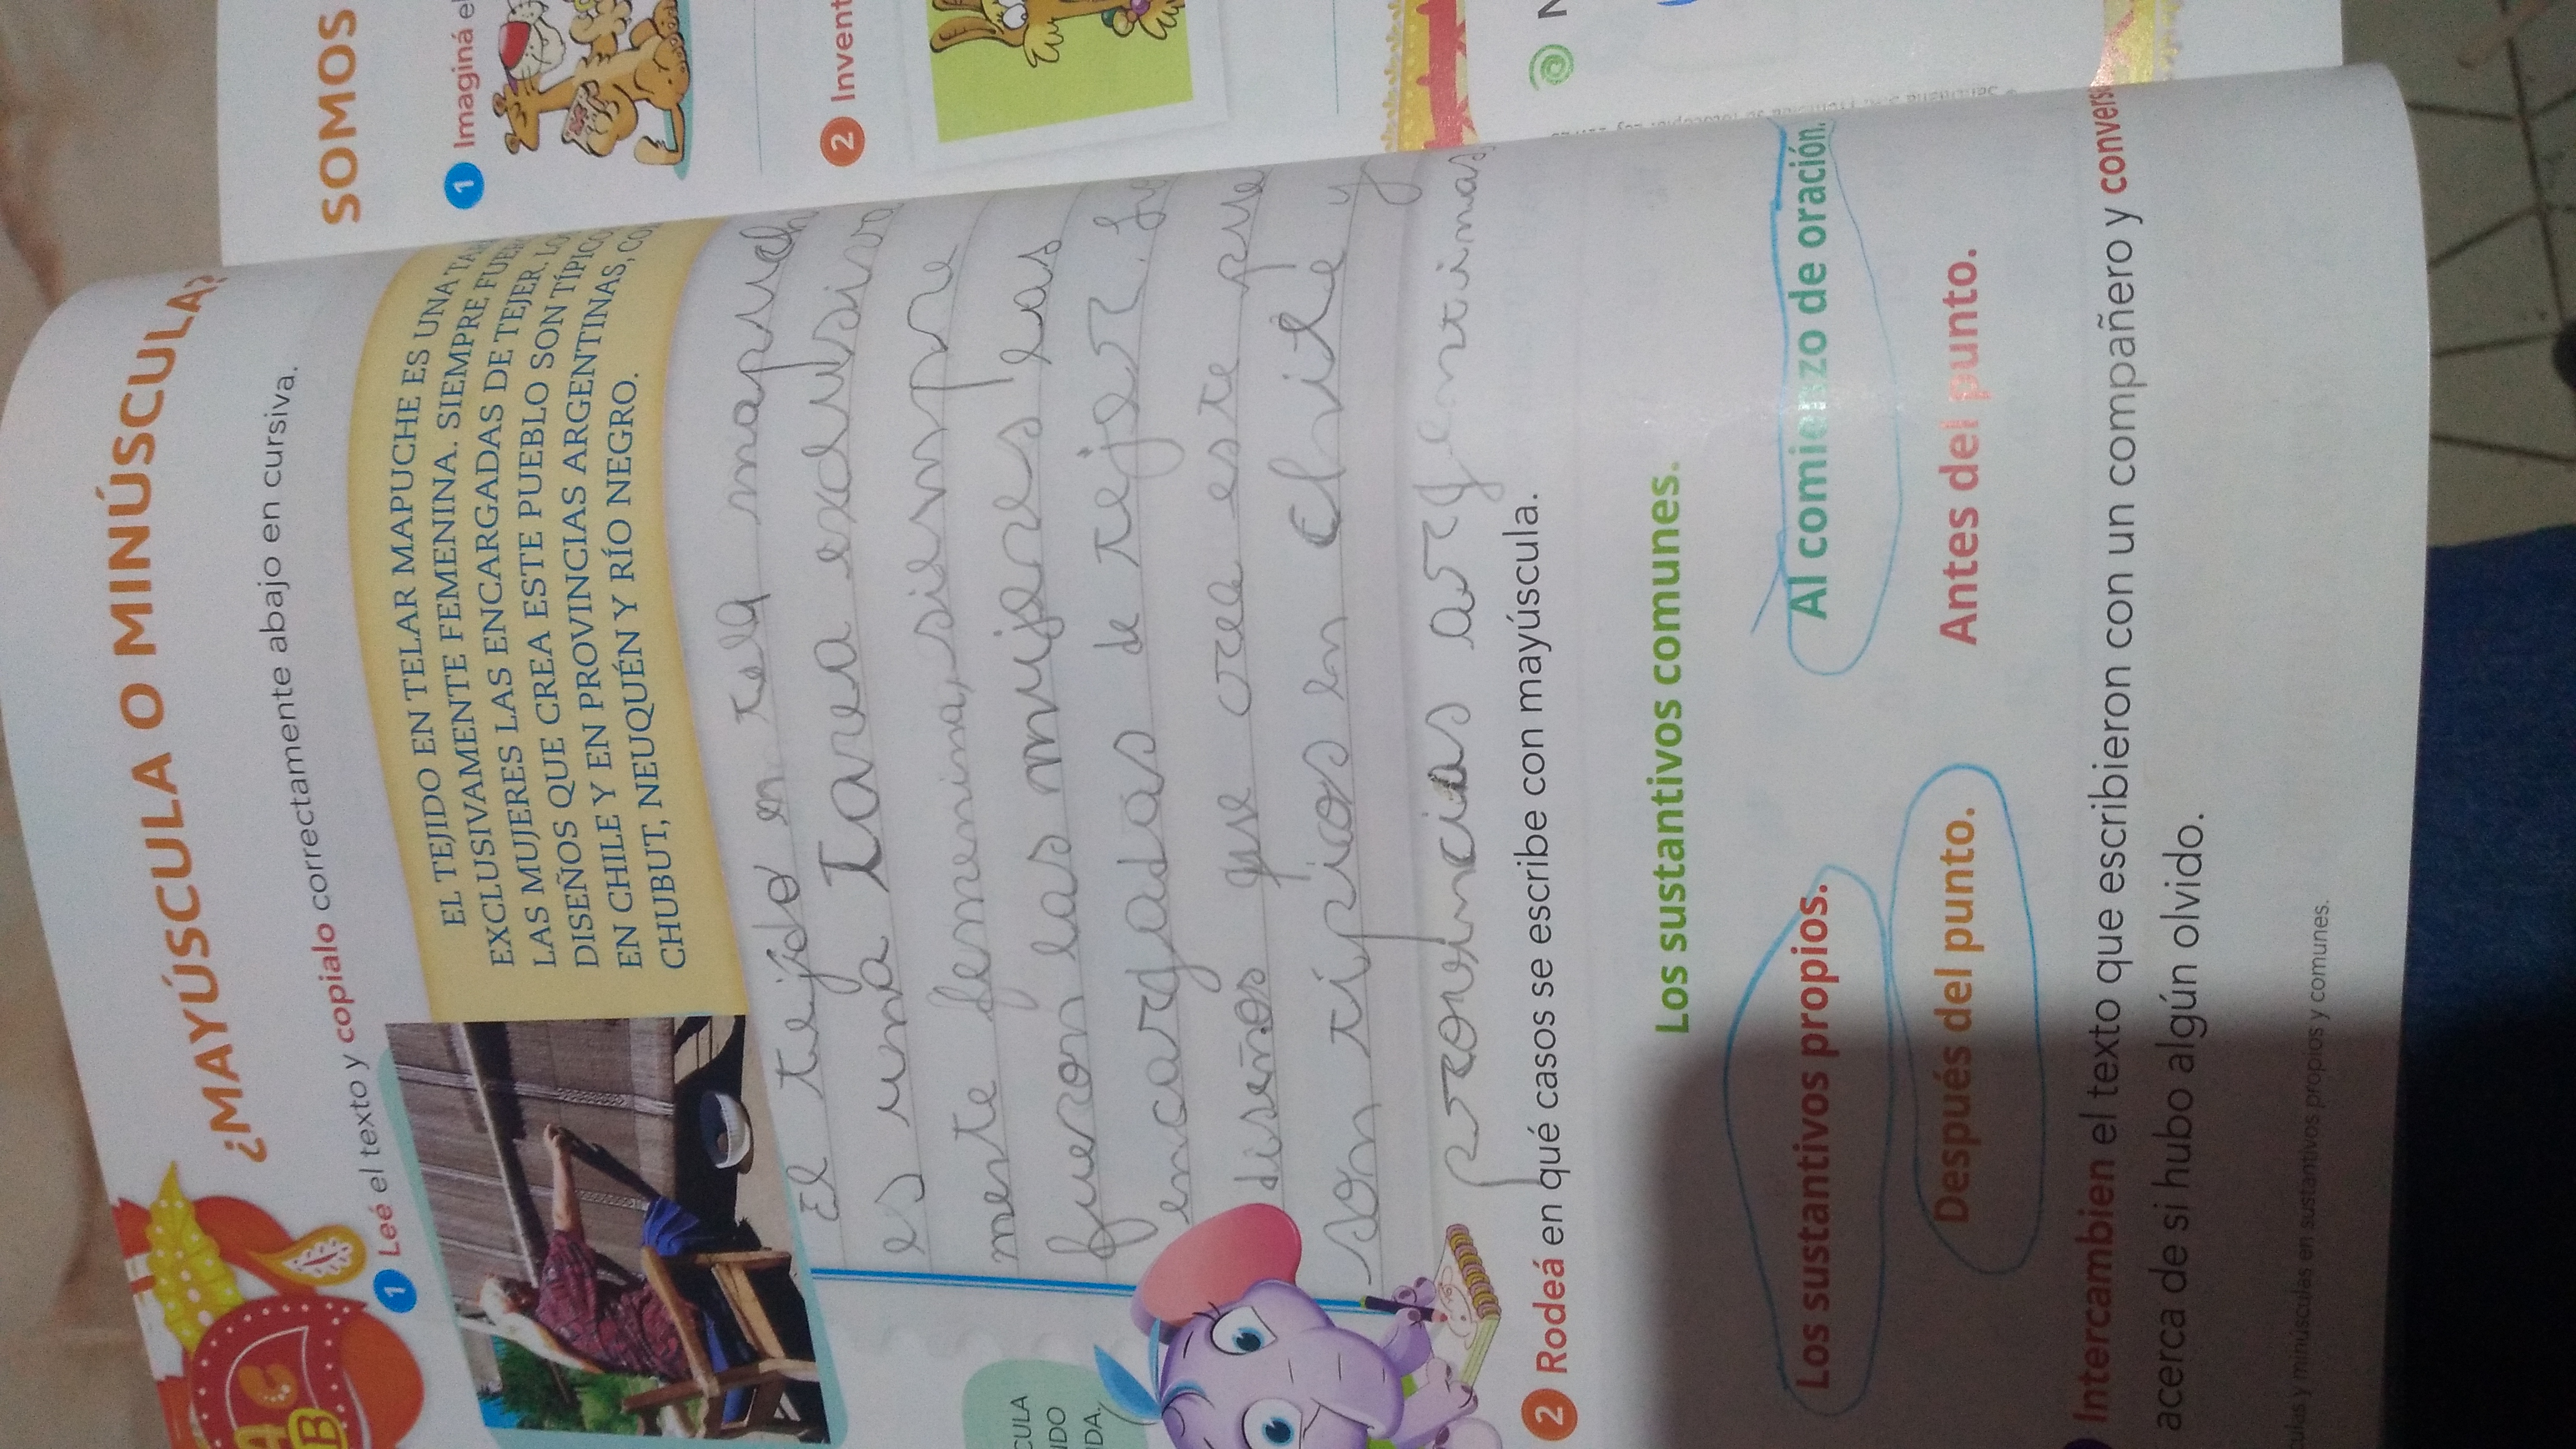 ¿MAYÚSCULA O MINÚSCULA?
1 Leé el texto y copialo correctamente abajo en cursiva.
EL TEJIDO EN TELAR MAPUCHE ES UNA
EXCLUSIVAMENTE FEMENINA. SIEMPRE
LAS MUJERES LAS ENCARGADAS DE TEJER.
DISEÑOS QUE CREA ESTE PUEBLO SON
EN CHILE Y EN PROVINCIAS ARGENTINAS,
CHUBUT, NEUQUÉN Y RÍO NEGRO.
El tejido en tela mapuch
es una Tarea exclusiva
mente femenina, siempre
fueron las mujeres las
encargadas de tejer.
diseños que crea este pue
son típicos en Chile y
provincias argentinas,
CULA
NDO
DA.
2 Rodeá en qué casos se escribe con mayúscula.
Los sustantivos comunes.
Los sustantivos propios.
Al comienzo de oración.
Después del punto.
Antes del punto.
Intercambien el texto que escribieron con un compañero y convers
acerca de si hubo algún olvido.
ulas y minúsculas en sustantivos propios y comunes.
SOMOS
1 Imaginá el
2 Invent
N